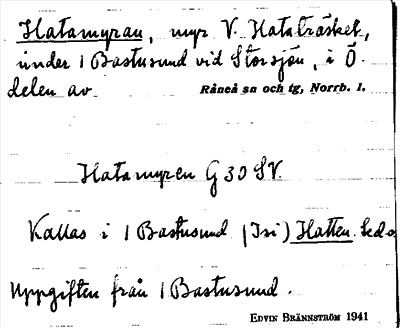 Hatamyran, myr V. Hataträsket,
under 1 Bastusund vid Storsjön, i Ö.
delen av Råneå sn och tg, Norrb. l.
Hatamyren G 30 SV.
Kallas i 1 Bastusund (Isi) Hatten.
Uppgiften från 1 Bastusund.
EDVIN BRÄNNSTRÖM 1941